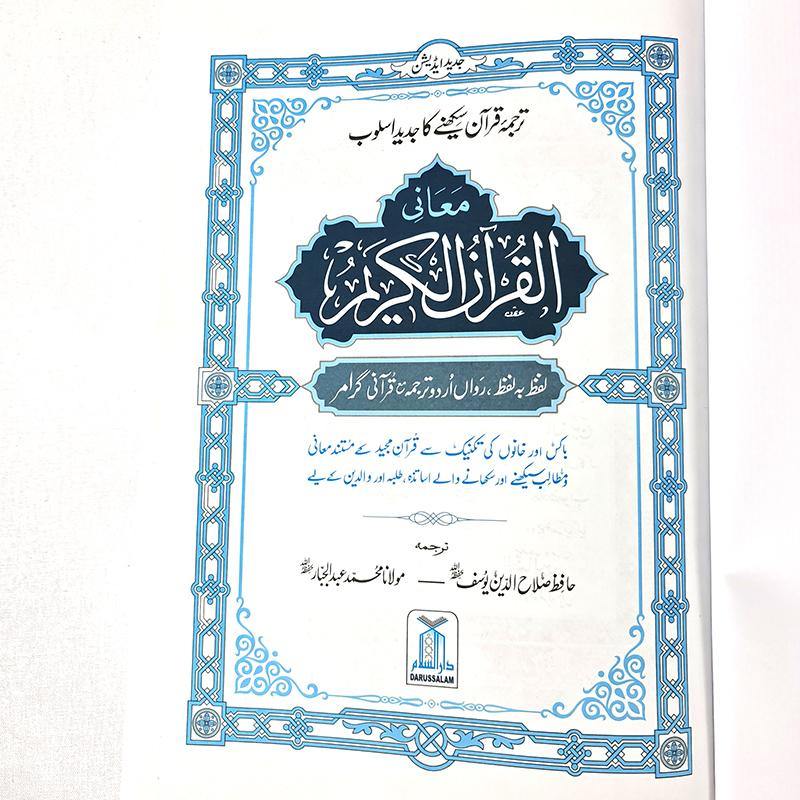 جدید ایڈیشن
ترجمۂ قرآن سیکھنے کا جدید اسلوب
مَعَانِی
القُرآنُ الکَرِیمُ
لفظ بہ لفظ، رَواں اُردو ترجمہ مع قرآنی گرامر
باکس اور خانوں کی تکنیک سے قرآن مجید کے مستند معانی
و مطالب سیکھنے اور سکھانے والے اساتذہ، طلبہ اور والدین کے لیے
ترجمہ
حافظ صلاح الدین یُوسف حفظہ اللہ — مولانا محمّد عبد الجبّار حفظہ اللہ
دارالسلام
DARUSSALAM